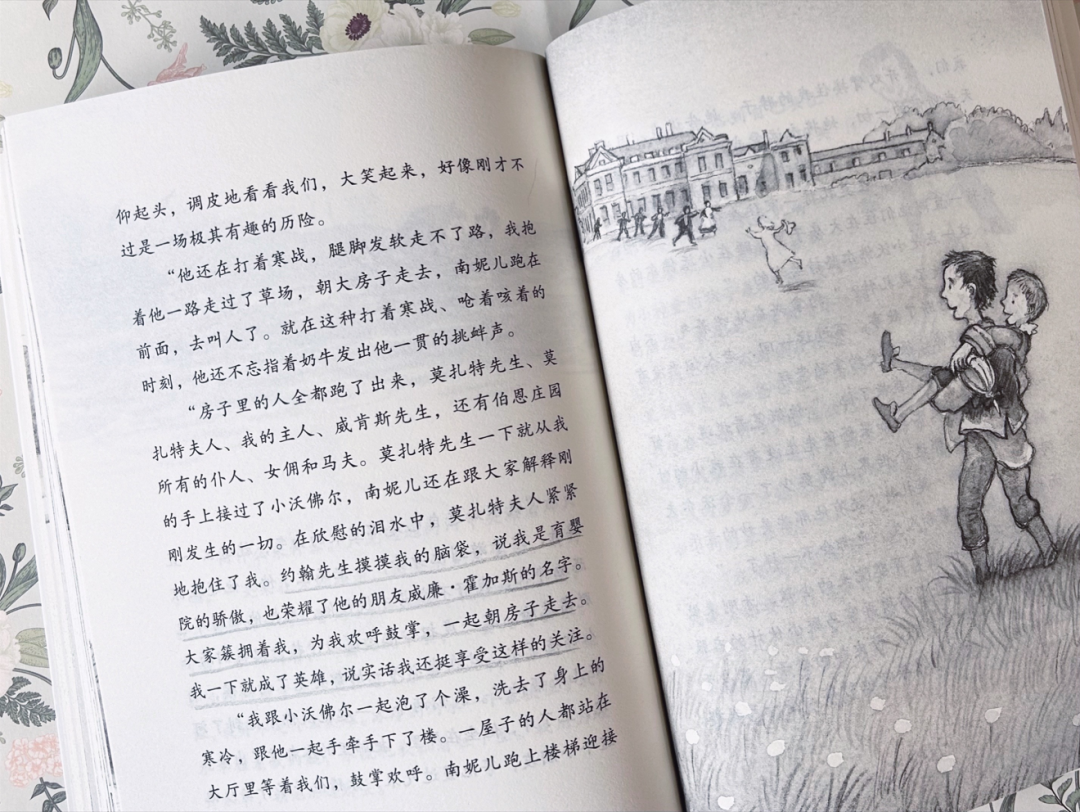 仰起头，调皮地看看我们，大笑起来，好像刚才不
过是一场极其有趣的历险。
“他还在打着寒战，腿脚发软走不了路，我抱
着他一路走过了草场，朝大房子走去，南妮儿跑在
前面，去叫人了。就在这种打着寒战、呛着咳着的
时刻，他还不忘指着奶牛发出他一贯的挑衅声。
“房子里的人全都跑了出来，莫扎特先生、莫
扎特夫人、我的主人、威肯斯先生，还有伯恩庄园
所有的仆人、女佣和马夫。莫扎特先生一下就从我
的手上接过了小沃佛尔，南妮儿还在跟大家解释刚
刚发生的一切。在欣慰的泪水中，莫扎特夫人紧紧
地抱住了我。约翰先生摸摸我的脑袋，说我是育婴
院的骄傲，也荣耀了他的朋友威廉·霍加斯的名字。
大家簇拥着我，为我欢呼鼓掌，一起朝房子走去。
我一下就成了英雄，说实话我还挺享受这样的关注。
“我跟小沃佛尔一起泡了个澡，洗去了身上的
寒冷，跟他一起手牵手下了楼。一屋子的人都站在
大厅里等着我们，鼓掌欢呼。南妮儿跑上楼梯迎接